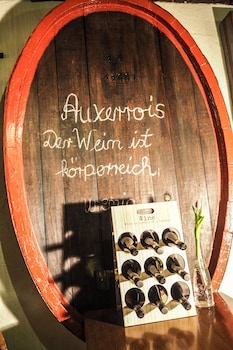 Auxerrois
Der Wein ist
körperreich,
Wine